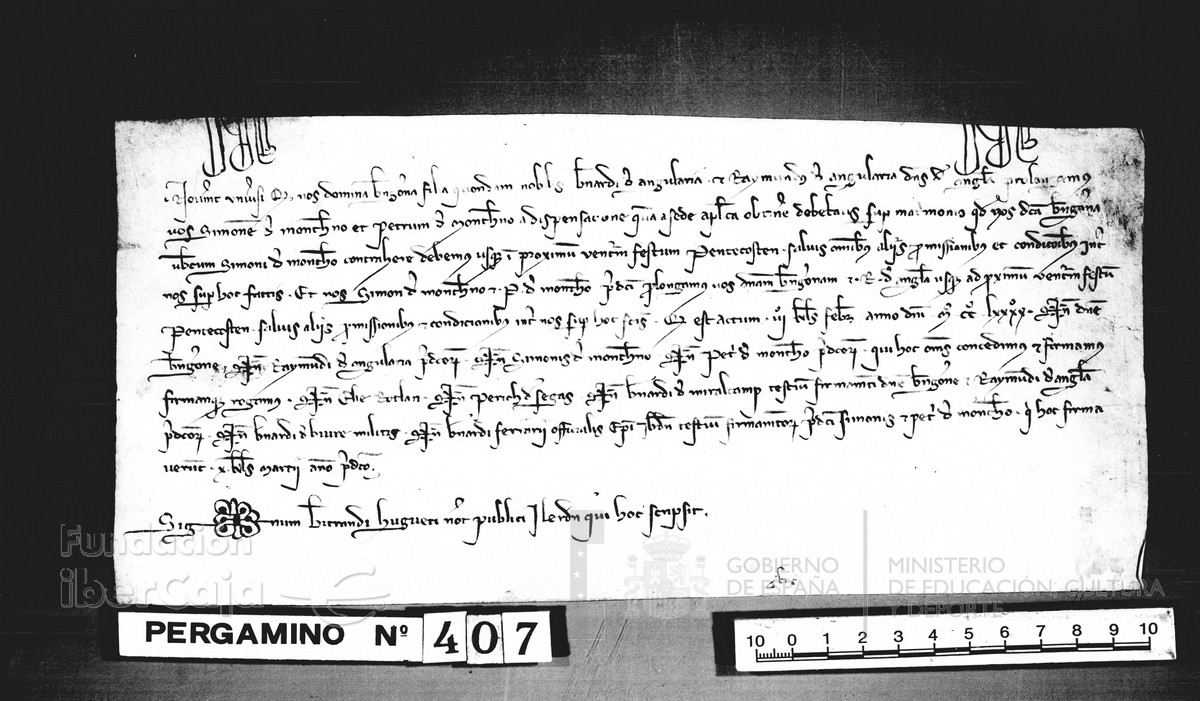 Noverint universi q nos domina bngona filia quondam nobilis bnardi d angularia et Raymundus d angularia dns d anglar prolongamus
vos Simonem d montchno et Petrum d montchno a dispensatione qua a sede aplica obtine debebatis sup matrimonio qd nos dcam bngonam
ubctum Simoni d montcho contrahere debemus usq i proximum ventm festum Pentecosten salvis omib alijs promissionibus et condicoibus int
nos sup hoc factis Et nos Simon d montchno et P d montcho pdcti prolongamus vos dnam bngonam et R d angla usq ad proximum ventm festum
Pentecosten salvis alijs promissionibus et condicionibus int nos sup hoc fcis Q est actum VII kls febr anno dni M CC LXXXX Signum dne
bngone Signum Raymundi d angularia pdcor Signum Simonis d montchno Signum Pet d montcho pdcor qui hoc oms concedimus et firmamus
firmariq rogamus Signum Elie Rotlan Signum Perich d segas Signum bnardi d miralcamp testium firmamti dne bngone et Raymundi d angla
pdcor Signum bnardi d bivre militis Signum bnardi ferrarii officialis Epi Ibdn testium firmamtor pdcti Simonis et pet d montcho q hoc firma
verunt X kls martii anno pdco
Sig num btrandi hugueti not publici Ilerdn qui hoc scripsit
Fundación
iberCaja
GOBIERNO
DE ESPAÑA
MINISTERIO
DE EDUCACIÓN, CULTURA
Y DEPORTE
PERGAMINO Nº 407
10 0 1 2 3 4 5 6 7 8 9 10